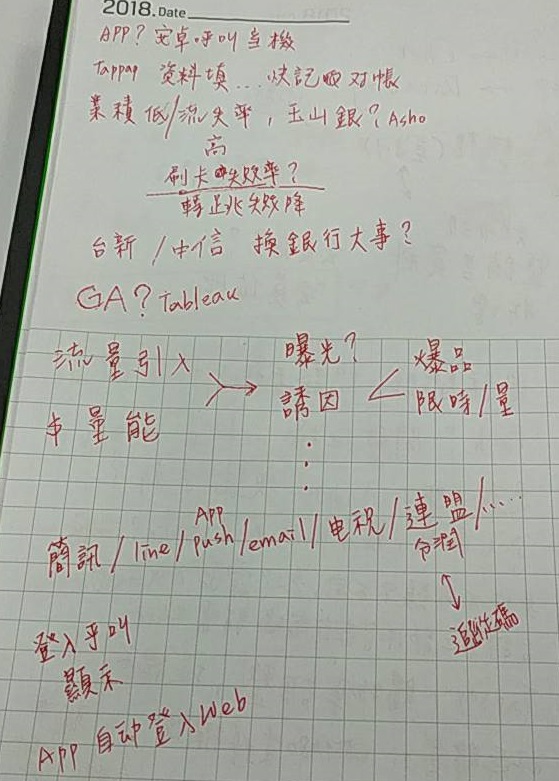 2018. Date
APP? 安卓呼叫当機
Tappay 資料填...快記呕对帳
業積低/流失率，玉山銀? Asho
高
刷卡失敗率?
轉跳失敗降
台新/中信 換銀行大事?
GA? Tableau
流量引入 曝光? 爆品
本量能 誘因 限時/量
App
簡訊/line/push/email/电视/連盟/......
分潤
登入乎叫 追蹤碼
顯示
App 自动登入Web